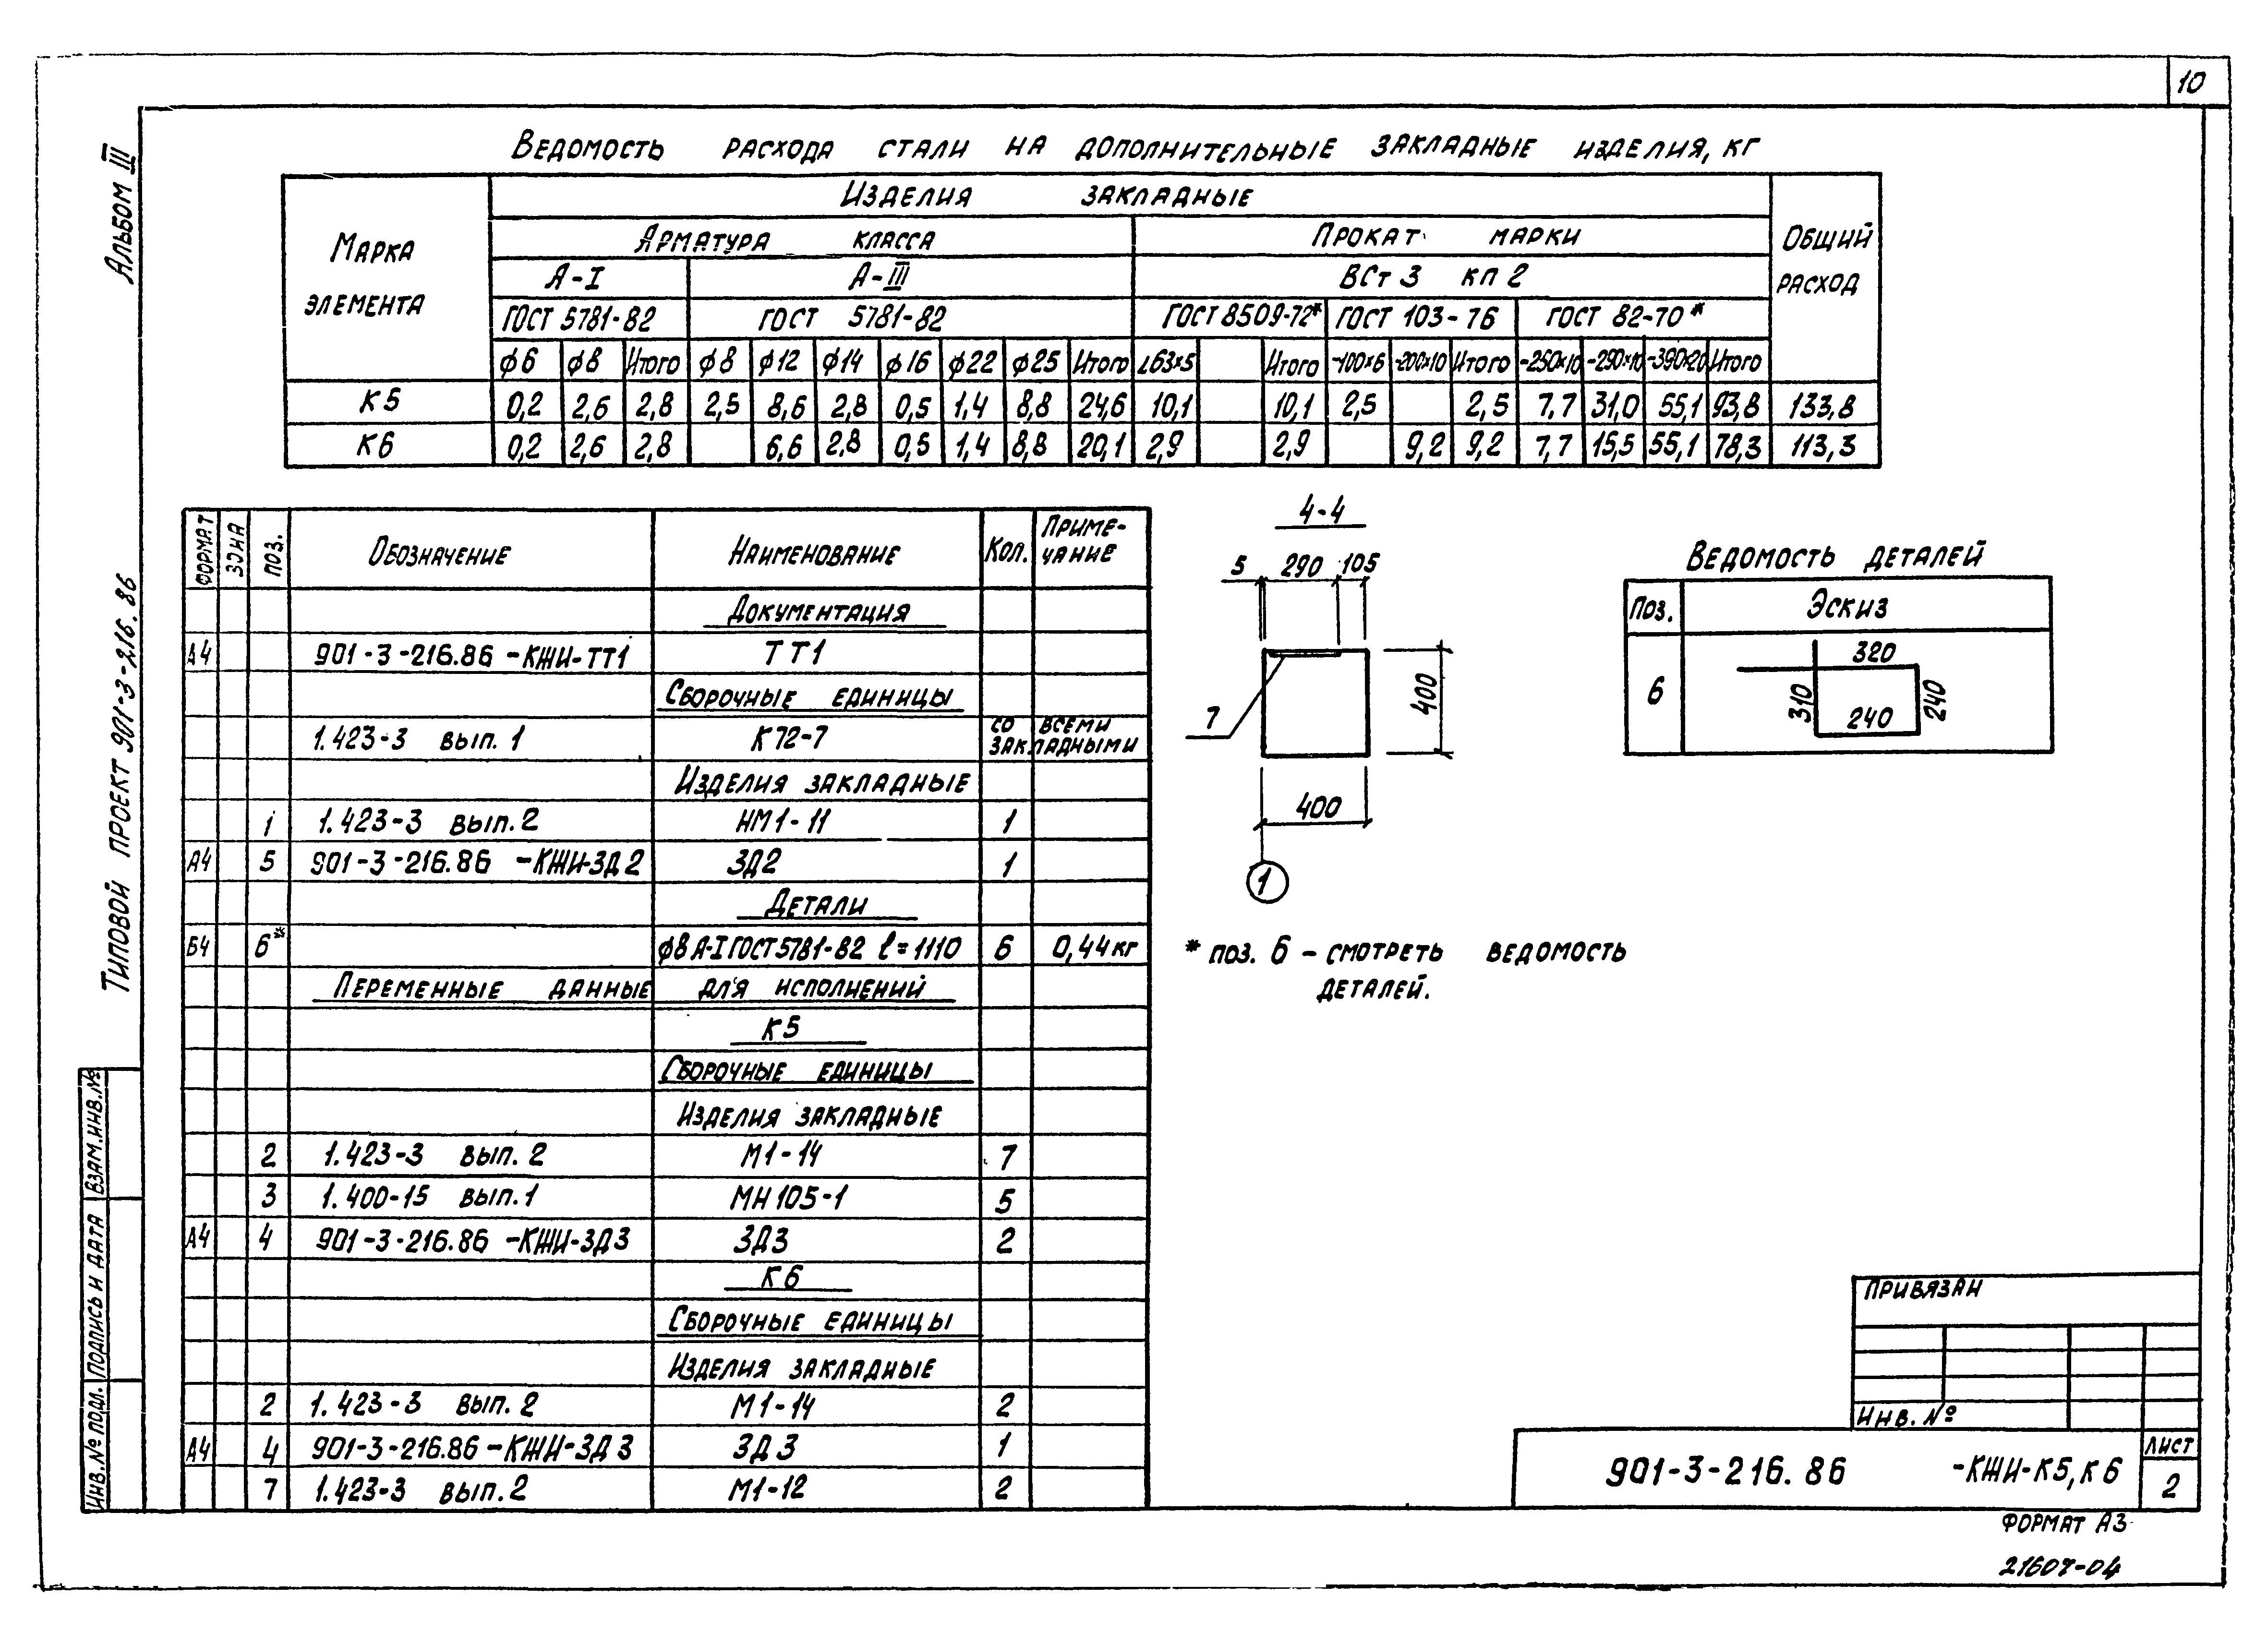 10
Альбом III
Типовой проект 901-3-216.86
Взам.инв.№
Подпись и дата
Инв.№ подл.
Ведомость расхода стали на дополнительные закладные изделия, кг
Марка элемента | Изделия закладные | Общий расход
Арматура класса | Прокат марки
А-I | А-III | ВСт 3 кп 2
ГОСТ 5781-82 | ГОСТ 5781-82 | ГОСТ 8509-72* | ГОСТ 103-76 | ГОСТ 82-70*
ф6 | ф8 | Итого | ф8 | ф12 | ф14 | ф16 | ф22 | ф25 | Итого | L63×5 | Итого | -100×6 | -200×10 | Итого | -250×10 | -290×10 | -390×20 | Итого
К5 | 0,2 | 2,6 | 2,8 | 2,5 | 8,6 | 2,8 | 0,5 | 1,4 | 8,8 | 24,6 | 10,1 | 10,1 | 2,5 | 2,5 | 7,7 | 31,0 | 55,1 | 93,8 | 133,8
К6 | 0,2 | 2,6 | 2,8 | 6,6 | 2,8 | 0,5 | 1,4 | 8,8 | 20,1 | 2,9 | 2,9 | 9,2 | 9,2 | 7,7 | 15,5 | 55,1 | 78,3 | 113,3
Формат | Зона | Поз. | Обозначение | Наименование | Кол. | Примечание
Документация
А4 | 901-3-216.86 -КЖИ-ТТ1 | ТТ1
Сборочные единицы
1.423-3 вып. 1 | К72-7 | со всеми закладными
Изделия закладные
1 | 1.423-3 вып. 2 | НМ1-11 | 1
А4 | 5 | 901-3-216.86 -КЖИ-ЗД2 | ЗД2 | 1
Детали
Б4 | 6* | ф8 А-I ГОСТ 5781-82 ℓ=1110 | 6 | 0,44кг
Переменные данные для исполнений
К5
Сборочные единицы
Изделия закладные
2 | 1.423-3 вып. 2 | М1-14 | 7
3 | 1.400-15 вып. 1 | МН105-1 | 5
А4 | 4 | 901-3-216.86 -КЖИ-ЗД3 | ЗД3 | 2
К6
Сборочные единицы
Изделия закладные
2 | 1.423-3 вып. 2 | М1-14 | 2
А4 | 4 | 901-3-216.86-КЖИ-ЗД3 | ЗД3 | 1
7 | 1.423-3 вып. 2 | М1-12 | 2
4-4
5 290 105
7
400
400
1
* поз. 6 - смотреть ведомость
деталей.
Ведомость деталей
Поз. | Эскиз
6
320
310
240
240
Привязан
Инв. №
901-3-216.86 -КЖИ-К5, К6
Лист
2
Формат А3
21607-04